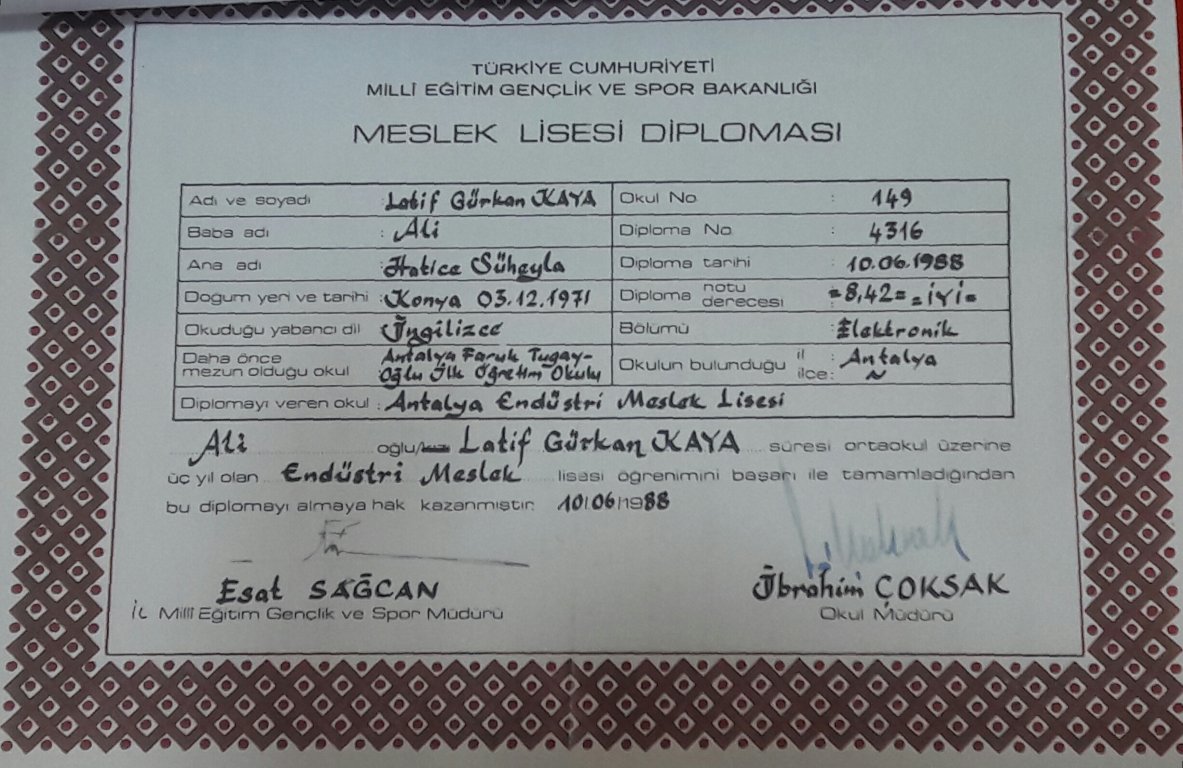 TÜRKİYE CUMHURİYETİ
MİLLÎ EĞİTİM GENÇLİK VE SPOR BAKANLIĞI
MESLEK LİSESİ DİPLOMASI
Adı ve soyadı : Latif Gürkan KAYA Okul No : 149
Baba adı : Ali Diploma No : 4316
Ana adı : Hatice Süheyla Diploma tarihi : 10.06.1988
Doğum yeri ve tarihi : Konya 03.12.1971 Diploma notu derecesi : =8,42= = iyi =
Okuduğu yabancı dil : İngilizce Bölümü : Elektronik
Daha önce mezun olduğu okul : Antalya Faruk Tugay-
Oğlu İlk Öğretim Okulu Okulun bulunduğu il : Antalya
ilçe: ~
Diplomayı veren okul : Antalya Endüstri Meslek Lisesi
Ali oğlu/ Latif Gürkan KAYA süresi ortaokul üzerine
üç yıl olan Endüstri Meslek lisesi öğrenimini başarı ile tamamladığından
bu diplomayı almaya hak kazanmıştır. 10/06/1988
Esat SAĞCAN İbrahim ÇOKSAK
İL Millî Eğitim Gençlik ve Spor Müdürü Okul Müdürü